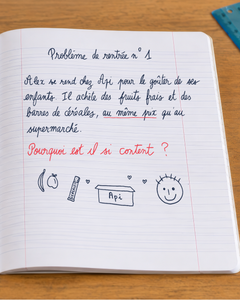 Problème de rentrée n° 1
Alex se rend chez Api pour le goûter de ses
enfants. Il achète des fruits frais et des
barres de céréales, au même prix qu'au
supermarché.
Pourquoi est il si content ?
Api